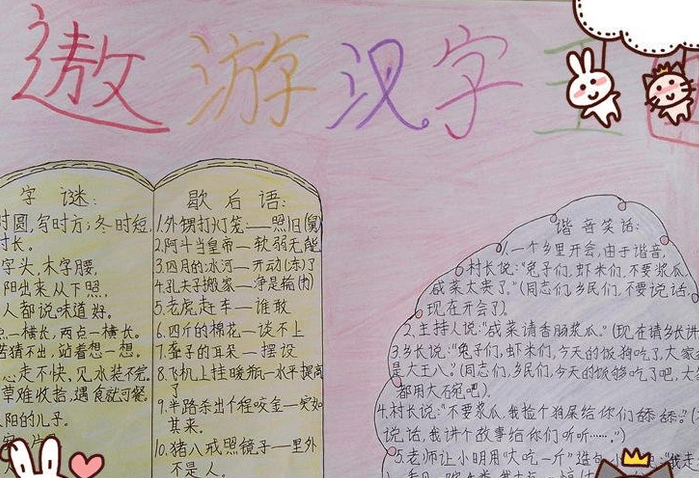 遨游汉字王
字谜:
时圆,写时方;冬时短,
时长。
字头,木字腰,
阳出来从下照,
人都说味道好。
点一横长,两点一横长。
若猜不出,站着想一想。
心走不快,见水装不完
草难收拾,遇食就可餐。
阳的儿子。
歇后语:
1.外甥打灯笼——照旧(舅)
2.阿斗当皇帝—软弱无能
3.四月的冰河—开动(冻)了
4.孔夫子搬家—净是输(书)
5.老虎赶车—谁敢
6.四斤的棉花—谈不上
7.聋子的耳朵—摆设
8.飞机上挂暖瓶—水平提高
了
9.半路杀出个程咬金—突如
其来。
10.猪八戒照镜子—里外
不是人。
谐音笑话:
1.一个乡里开会,由于谐音,
村长说:“兔子们,虾米们,不要浆瓜,
咸菜太贵了。”(同志们,乡民们,不要说话,
现在开会了)
2.主持人说:“咸菜请香肠浆瓜。”(现在请乡长讲
3.乡长说:“兔子们,虾米们,今天的饭狗吃了,大家
是大王八。”(同志们,乡民们,今天的饭够吃了吧,大
都用大碗吧)
4.村长说:“不要浆瓜,我捡个狗屎给你们舔舔。”(
说话,我讲个故事给你们听听……。”)
5.老师让小明用“大吃一斤”造句,小